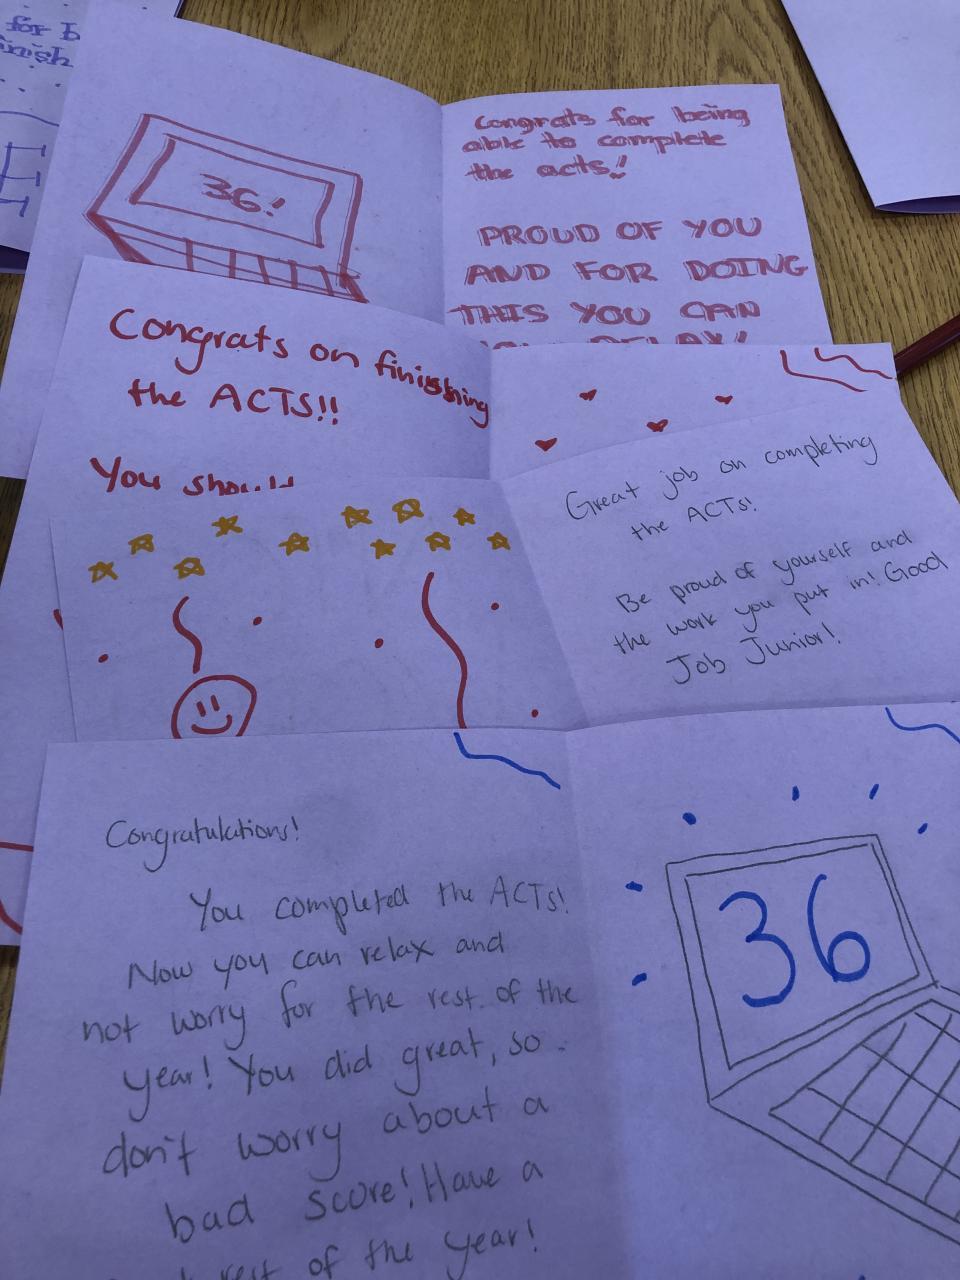 for b
inish
36!
Congrats for being
able to complete
the acts!
PROUD OF YOU
AND FOR DOING
THIS YOU CAN
RELAX!
Congrats on finisshing
the ACTS!!
You should
Great job on completing
the ACTs!
Be proud of yourself and
the work you put in! Good
Job Junior!
Congratulations!
You completed the ACTs!
Now you can relax and
not worry for the rest of the
year! You did great, so
don't worry about a
bad score! Have a
rest of the year!
36